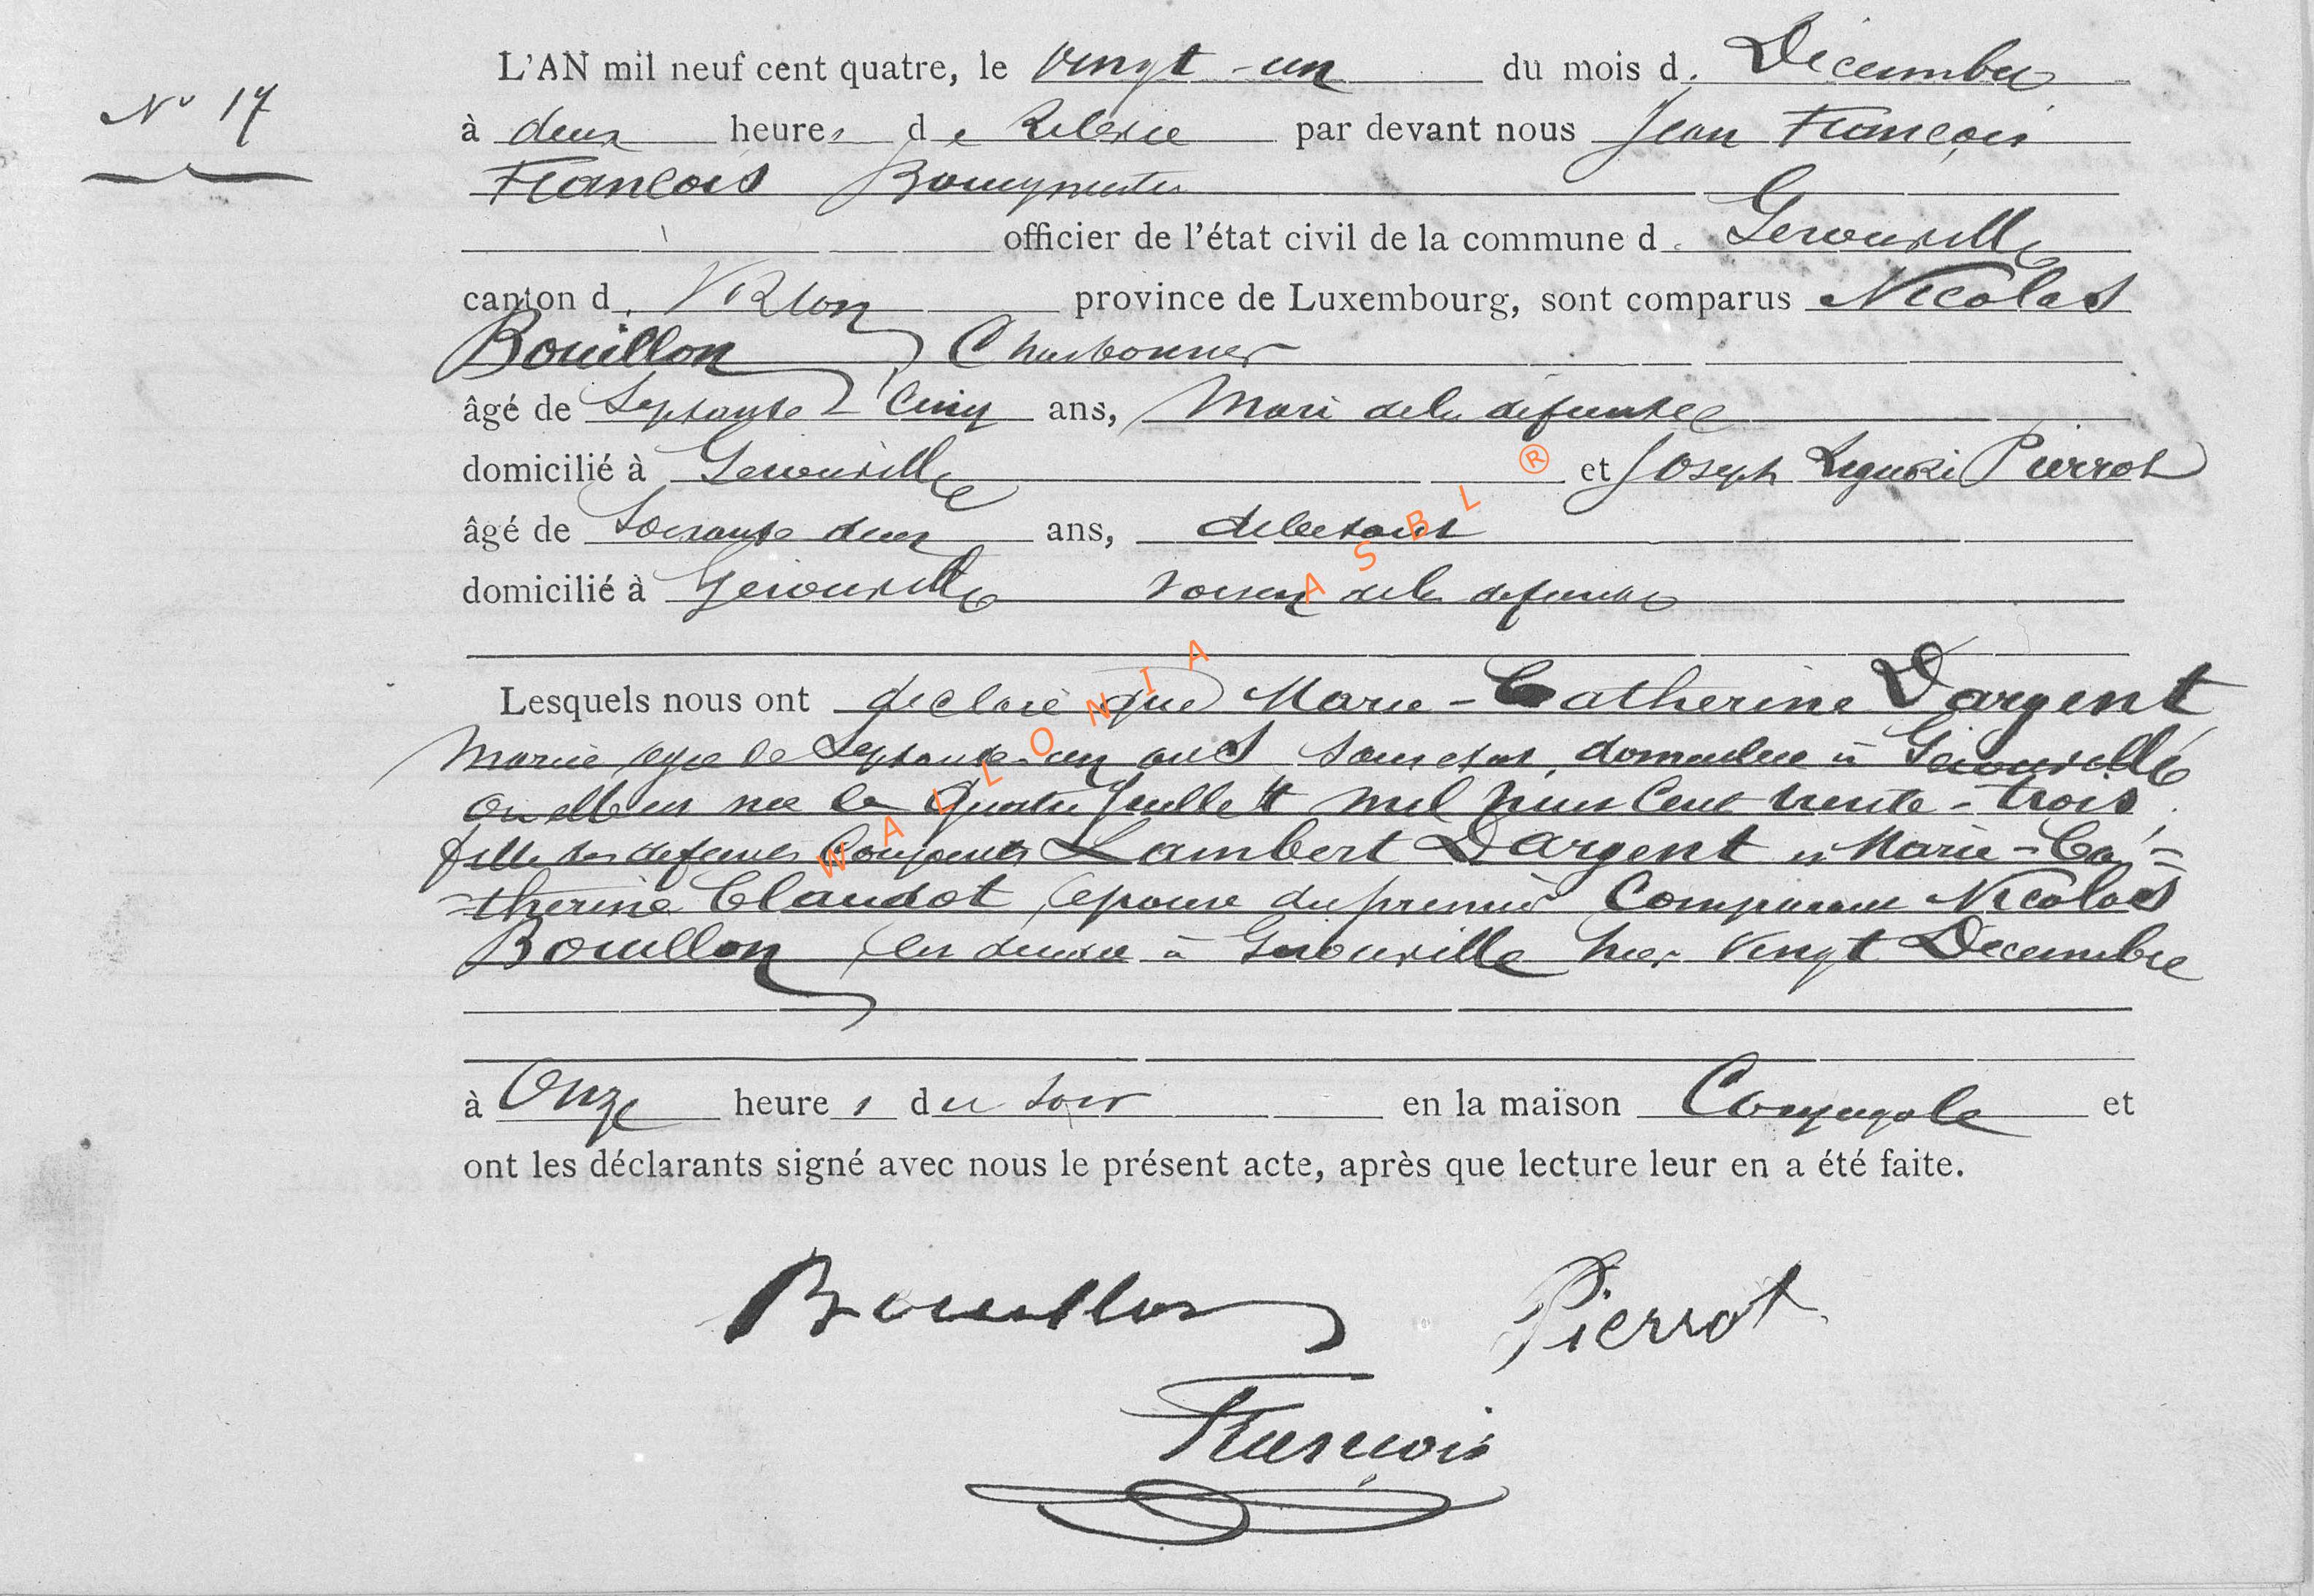 N° 17
L'AN mil neuf cent quatre, le vingt-un du mois d. Décembre
à deux heures de Relevée par devant nous Jean François
François Bourgmestre
officier de l'état civil de la commune d. Gerouville
canton d. Virton province de Luxembourg, sont comparus Nicolas
Bouillon, Charbonnier
âgé de Septante Cinq ans, Mari dela défunte
domicilié à Gerouville et Joseph Pierrot
âgé de Soixante deux ans, debitant
domicilié à Gerouville voisin dela defunte
Lesquels nous ont declaré que Marie-Catherine Dargent
mariée agee de Septante-un ans domiciliee à Gerouville
ou elle est nee le Quatre Juillett mil huit Cent trente-trois
fille des defunts Conjoints Lambert Dargent et Marie-Ca=
=therine Claudot, epouse du premier Comparant Nicolas
Bouillon, est décédée à Gerouville hier Vingt Decembre
à Onze heures du soir en la maison Conjugale et
ont les déclarants signé avec nous le présent acte, après que lecture leur en a été faite.
Bouillon Pierrot
François
WALLONIA ASBL ®